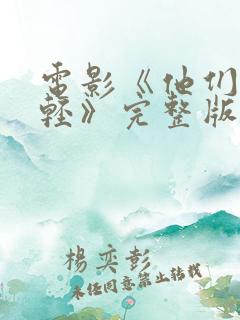 電影《他们
輕》完整版
楊奕彭
未经同意禁止转载